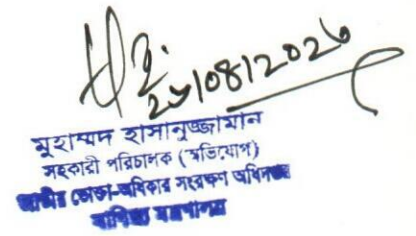 ২১/০৪/২০২৬
মুহাম্মদ হাসানুজ্জামান
সহকারী পরিচালক (অভিযোগ)
জাতীয় ভোক্তা-অধিকার সংরক্ষণ অধিদপ্তর
বাণিজ্য মন্ত্রণালয়